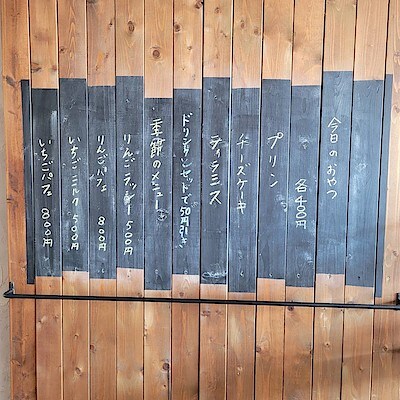 今日のおやつ
各480円
プリン
チーズケーキ
ティラミス
ドリンクとセットで50円引き
季節のメニュー
りんごラッシー 500円
りんごパフェ 800円
いちごミルク 500円
いちごパフェ 800円